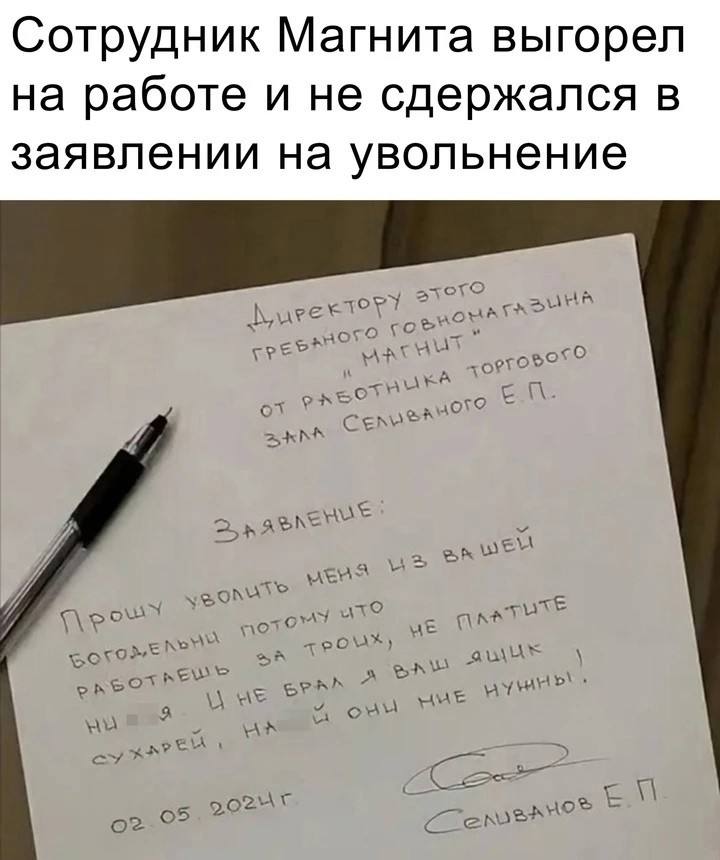 Сотрудник Магнита выгорел
на работе и не сдержался в
заявлении на увольнение
Директору этого
гребаного говномагазина
"Магнит"
от работника торгового
зала Селиваного Е.П.
Заявление:
Прошу уволить меня из вашей
богодельни потому что
работаешь за троих, не платите
ни я. И не брал я ваш ящик
сухарей, на й они мне нужны!
02.05.2024г.
Селиванов Е.П.